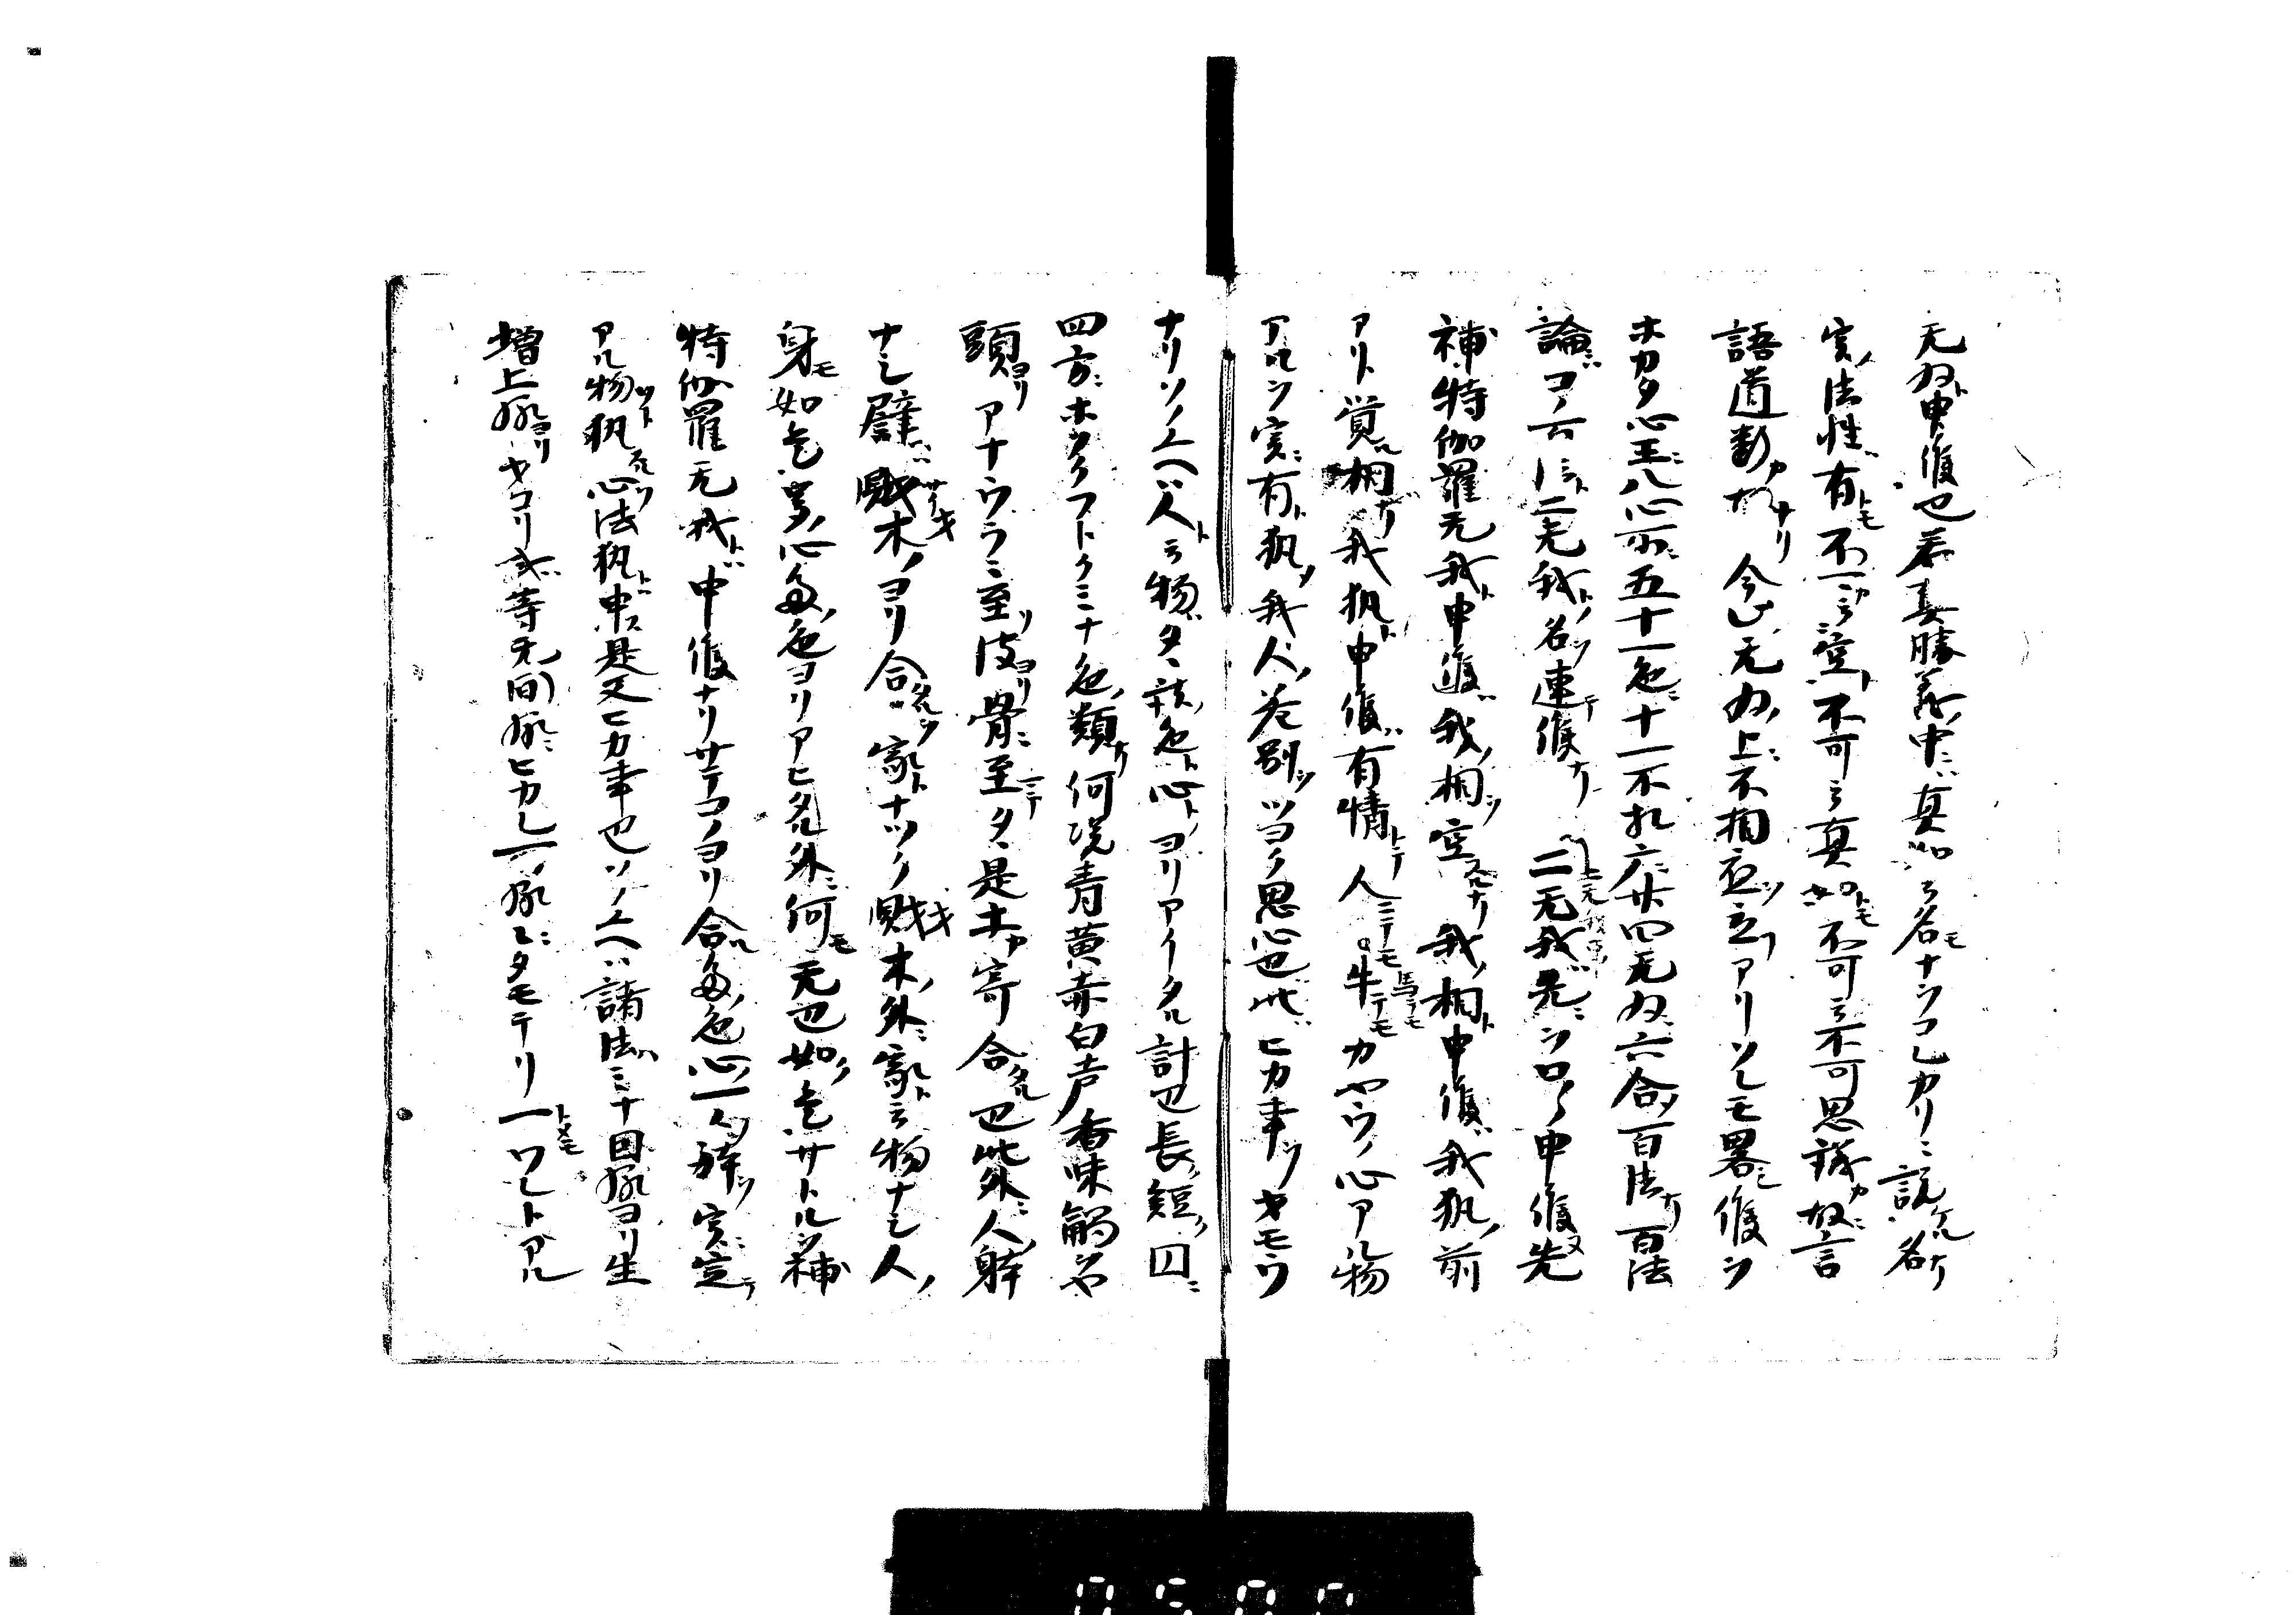 无為ト申候也若真勝義ノ中ニハ真如ト云名モナシコレカリニ説ケル名ナリ
実ノ法性ハ有トモ不可云空トモ不可云真如トモ不可云不可思議カ故ニ言
語道断カナリ今此无為ノ上ニ不相応ヲ立アリソレモ略シ候ツ
ホカタ心王ニ八心所ニ五十一色ニ十一不相応廿四无為六合百法ナリ百法
論ニハコノ云二无我トノ名ヲ連テ候ナリ 二无我ハ先ニソロソロ申候又先
補特伽羅无我ト申候ハ我ノ相ヲ空スルナリ我ノ相ト申候ハ我執ノ前
アリト覚ル相ナリ我執ト申候ハ有情トテ人ニテモ牛ニテモ馬ニテモカヤウノ心アル物
アルヲ実ニ有ト執メ我人ノ差別ヲツヨク思心也此ハヒカ事ヲオモウ
ナリソノユヘハ人ト云物ハタヽ色ト心トノヨリアイタル計也長ノ短ノ四ニ
四方ニホソクフトクミナ色ノ類ナリ何況青黄赤白声香味触ヤ
頭ヨリアナウラニ至リ皮ヨリ骨ニ至ニテタヽ是ヲ寄合タル也此外ニ人ノ躰
ナシ譬ハ財木ノヨリ合ルヲ家トナツク財木ノ外ニ家ト云物ナシ人ノ
身モ如是多ノ心多ノ色ヨリアヒタル外ニ何モ无也如ク是サトルヲ補
特伽羅无我トハ申候ナリサテコノヨリ合ル多ノ色心ノ一々ノ躰ヲ実ニ定テ
アル物ソト執スルヲ心法執トハ申ス是又ヒカ事也ソノユヘハ諸法ハミナ因縁ヨリ生
増上縁ヨリオコリ或ハ等无間縁ニヒカレ一ノ縁ニタモテリ一トメモワレトアル